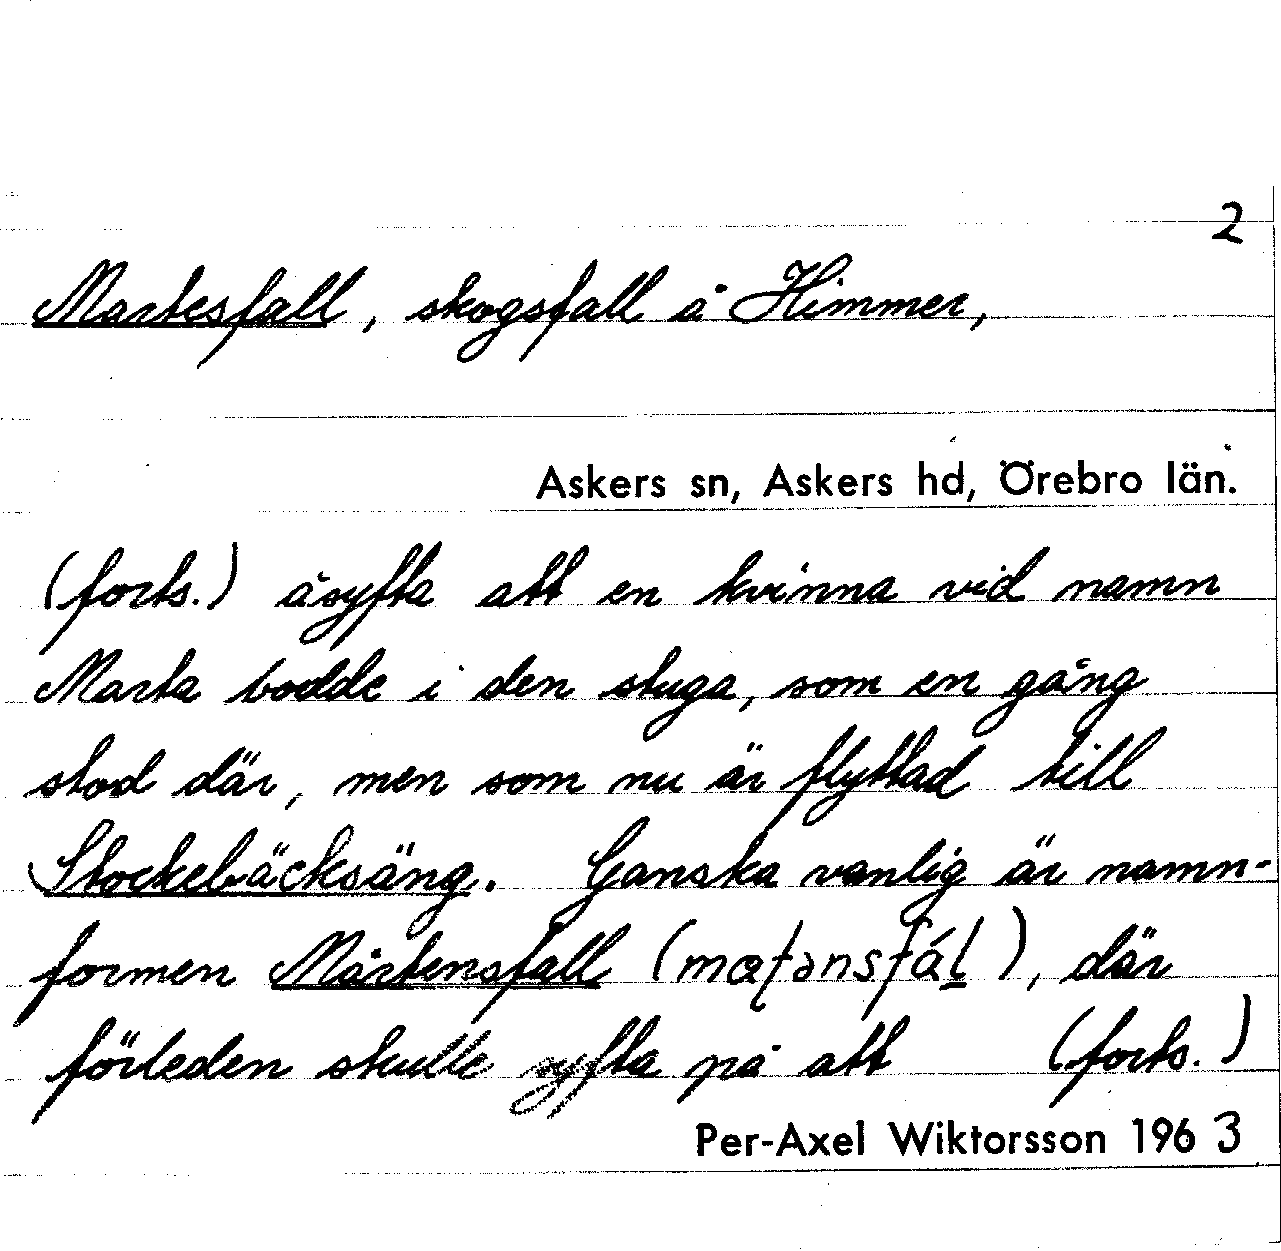 2
Martesfall, skogsfall å Himmer,
Askers sn, Askers hd, Örebro län.
(forts.) åsyfta att en kvinna vid namn
Marta bodde i den stuga, som en gång
stod där, men som nu är flyttad till
Stockebäcksäng. Ganska vanlig är namn-
formen Mårtensfall (mœʈənsfáḻ), där
förleden skulle syfta på att (forts.)
Per-Axel Wiktorsson 1963